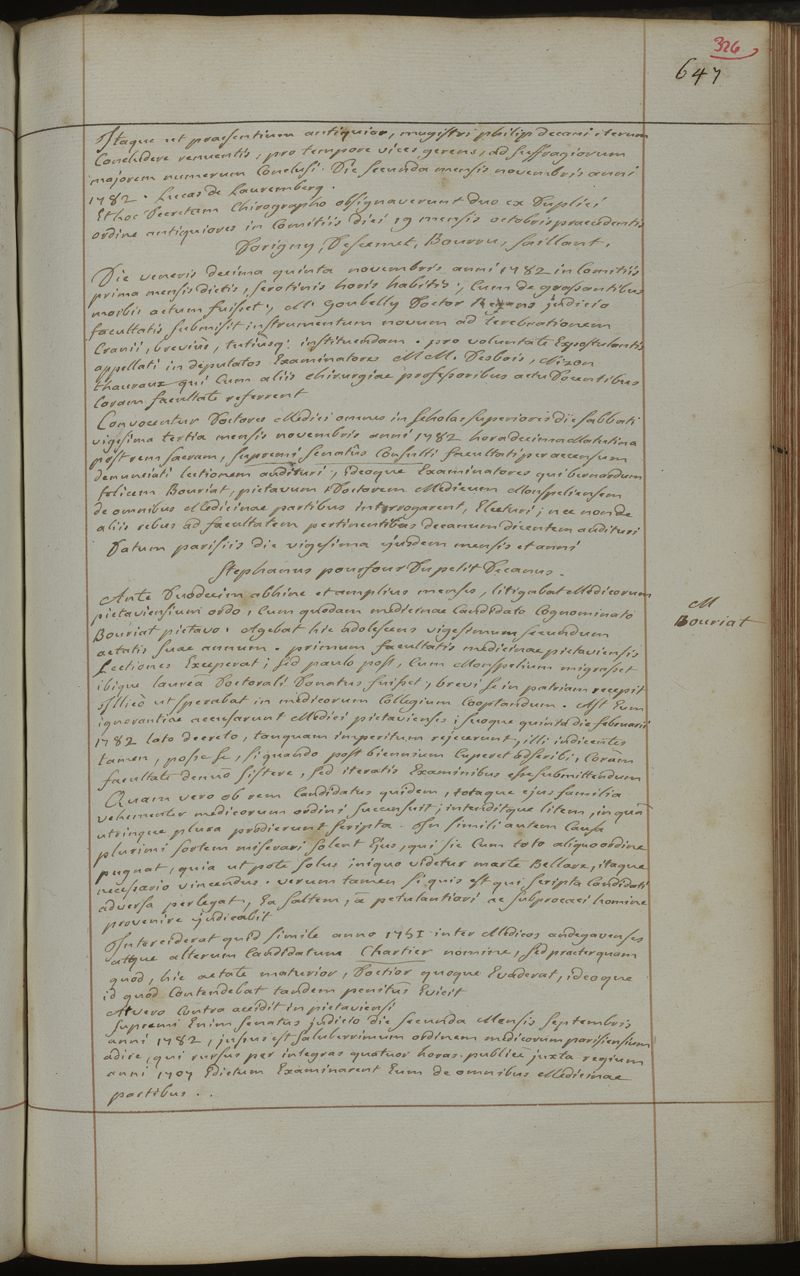 326
647
Itaque ut praesentium antiquior, magistri philip decani iterum
Concludere renuentis, pro tempore vices gerens, ad suffragiorum
majorem numerum Conclusi. Die secunda mensis novembris anni
1782. Lucas de Lauremberg.
Et hoc Decretum Chirographo obsignaverunt duo ex Duplici
ordine antiquiores in Comitiis diei 19 mensis octobris praecedentis
Dorigny, Descemet, Bourru, Saillant.
Die veneris decima quinta novembris anni 1782 in Comitiis
prima mensis dictis, serotinis horis habitis, Cum de grassantibus
morbis actum fuisset, Mr Goubelly Doctor Regens judicio
facultatis, submisit instrumentum novum ad terebrationem
Cranii, brevius, tutiusq: instituendam. pro voluntate Expostulantis
appellati in deputatos Examinatores MM. Desbois, Mixon
thauraux qui Cum aliis chirurgiae professoribus actu Docentibus
Coram facultate referrent
Convocentur Doctores Medici omnes in scholas superiores die sabbati
vigesima tertia mensis novembris anni 1782 hora decima Matutina
post rem sacram, supremi senatûs Consulti facultati per accensum
denunciati lectionem audituri, ideoque Examinatores qui bernardum
felicem Bouriat, pictavum Doctorem Medicum Monspeliensem
de omnibus Medicinae partibus interrogarent, Electuri; nec non de
aliis rebus ad facultatem pertinentibus decanum dicentem audituri
Datum parisiis die vigesima ejusdem mensis et anni
Stephanus pourfour Dupetit Decanus.
Ante Duodecim abhinc et amplius menses, litigabat Medicorum
pictaviensium ordo, Cum quodam medicinae Candidato Cognominato
M
Bouriat
Bouriat pictavo. Agebat hic adolescens vigesimum secundum
aetatis suae annum. primum facultatis medicinae pictaviensis
Lectiones Exceperat; sed paulo post, Cum Monspelium migrasset
ibique laureâ Doctorali Donatus fuisset, brevi se in patriam recepit
illicò ut sperabat in medicorum Collegium Cooptandum. Ast Eum
ignorantiae accusarunt Medici pictaviensis; suoque quintâ die februarii
1782 lato decreto, tanquam imperitum rejecerunt, illi indicentes
tamen, posse se, si quando post biennium Cuperet adscribi, Coram
facultate denuò sistere, sed iteratis Examinibus esse submittendum
Quam vero ob rem Candidatus quidem, totaque ejus familia
vehementer medicorum ordini succensuit; intenditque litem, in quâ
utrinque plura prodierunt scripta. In simili autem Causa
plurimi sortem miserari solent Ejus, qui sic Cum toto aliquo ordine
pugnat, quia ut pote solus iniquo videtur marte Bellare, itaque
necessario vincendus. verum tamen si quis est qui scripta Candidati
adversa perlegat, Ea saltem, a petulantiori ac subprocaci homine
provenire judicabit
Interciderat quid simile anno 1751 inter Medicos andegavenses
atque alterum Candidatum Chartier nomine, sed praeterquam
quod, hic aetate maturior, Doctior quoque Evaserat, ideoque
id quod Contendebat tandem penitus Evicit
At vero Contra accidit in pictaviensi
supremi Enim senatus judicio die secunda Mensis septembris
anni 1782, jussus est saluberrimum ordinem medicorum parisiensium
adire, qui rursus per integras quatuor horas publicè juxta regium
anni 1707 Edictum Examinarent Eum de omnibus Medicinae
partibus . .